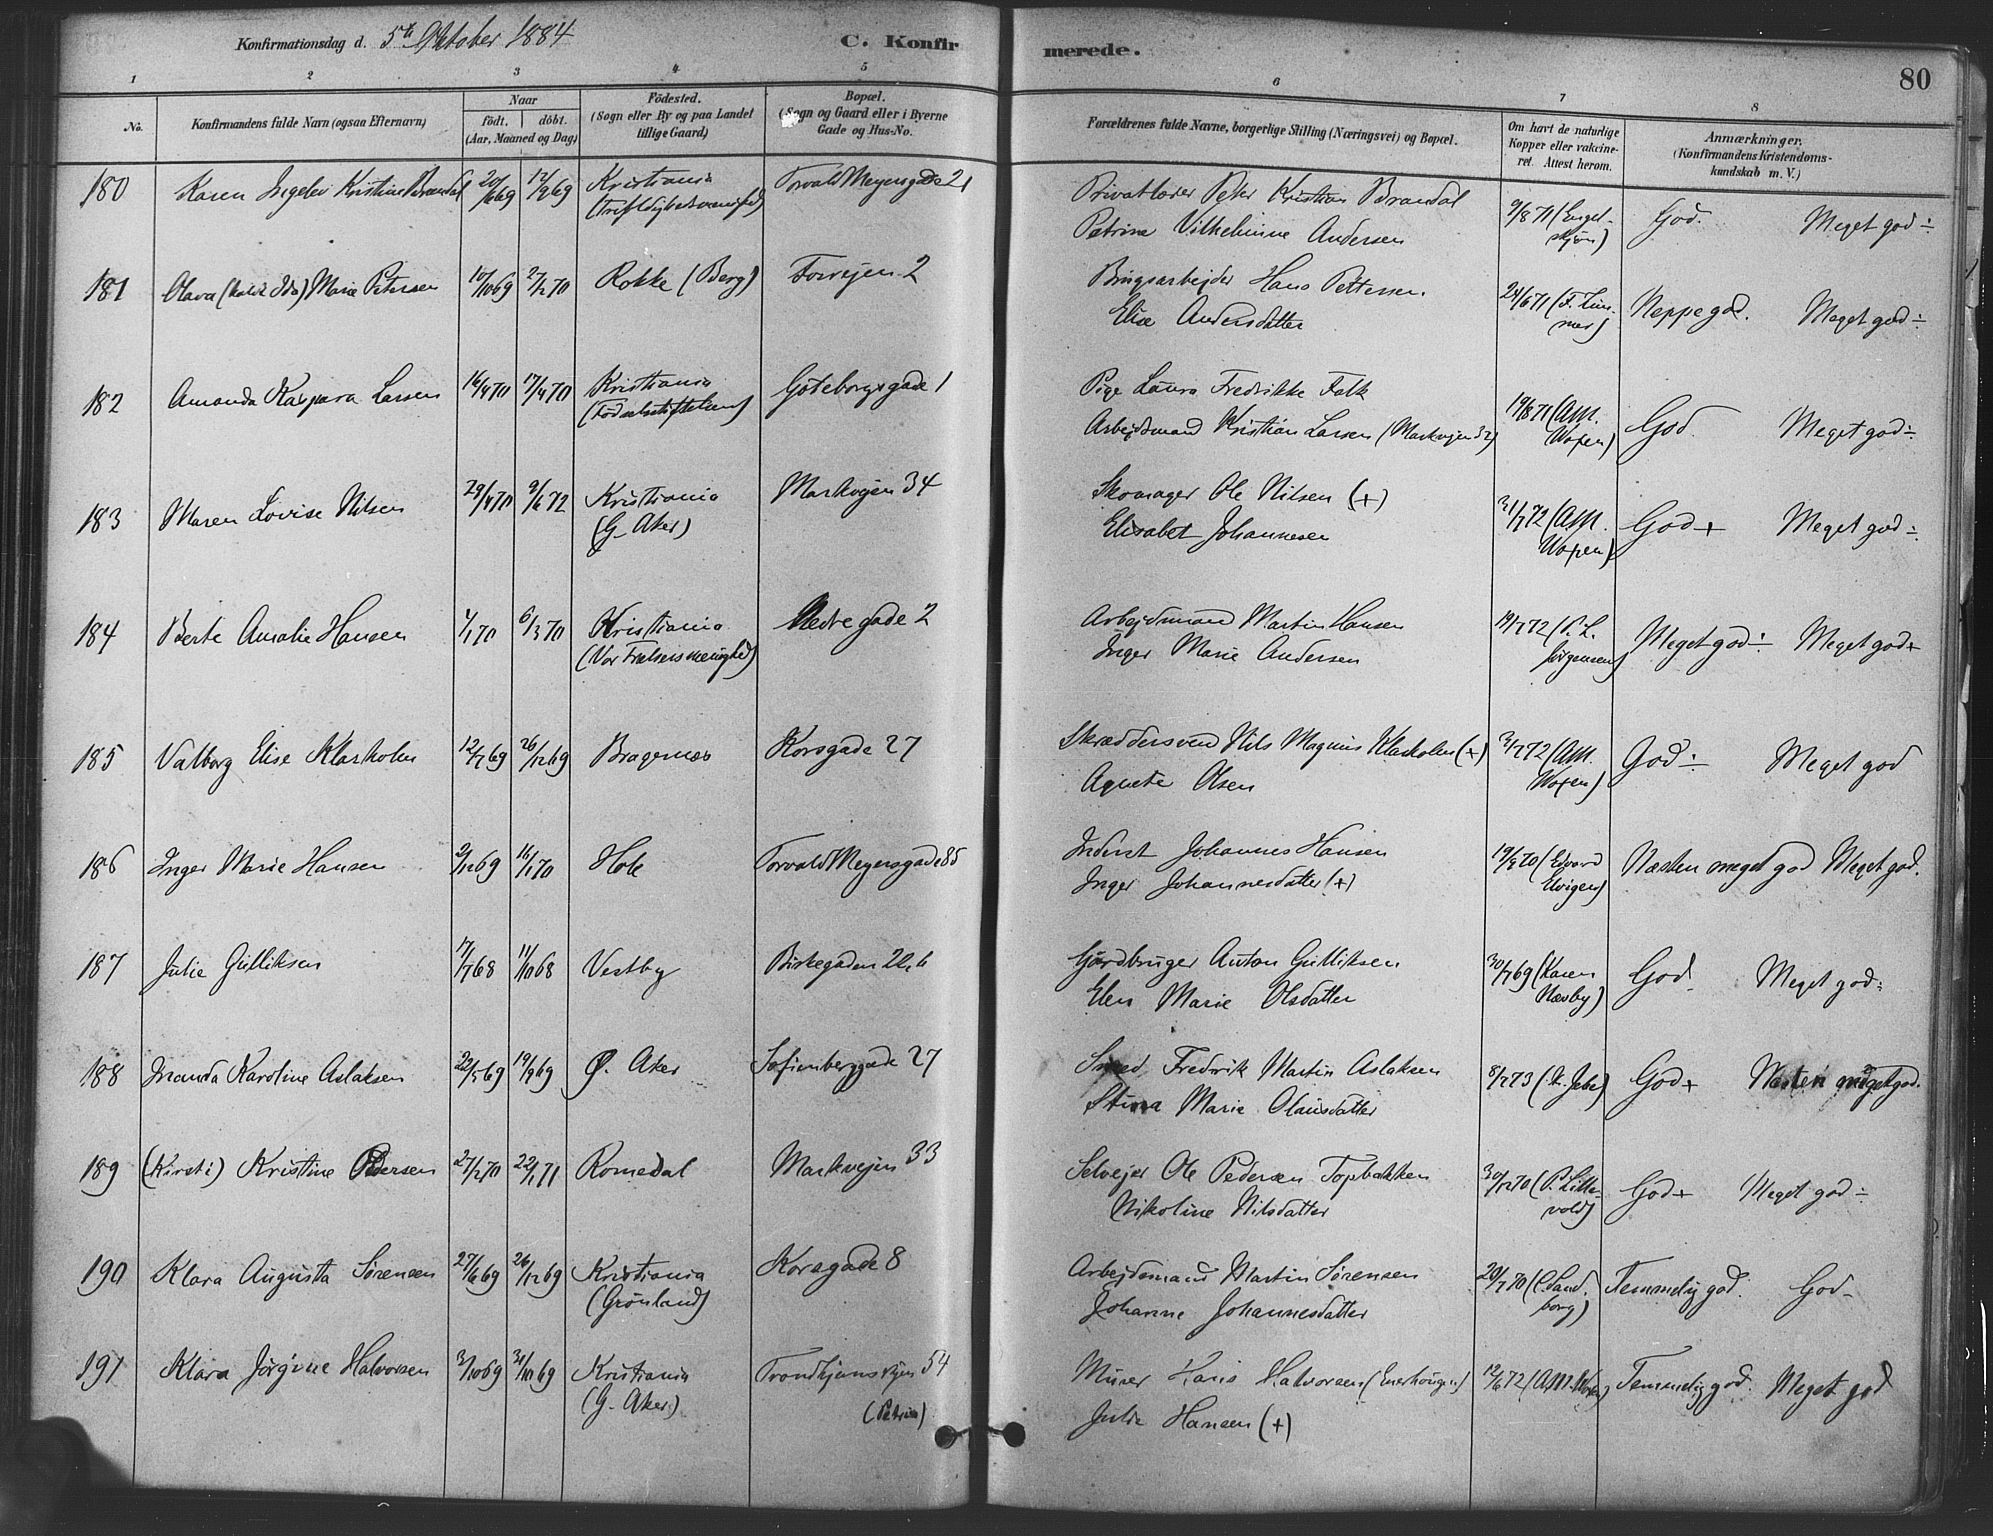 Konfirmationsdag d. 5te Oktober 1884
C. Konfirmerede.
80
1 2 3 4 5 6 7 8
No.
Konfirmandens fulde Navn (ogsaa Efternavn)
Naar
födt. döbt.
(Aar, Maaned og Dag)
Födested.
(Sogn eller By og paa Landet
tillige Gaard)
Bopæl.
(Sogn og Gaard eller i Byerne
Gade og Hus-No.
Forældrenes fulde Navne, borgerlige Stilling (Næringsvei) og Bopæl.
Om havt de naturlige
Kopper eller vakcine-
ret. Attest herom.
Anmærkninger.
(Konfirmandens Kristendoms-
kundskab m. V.)
180 Karen Ingelev Kristine Brandal 20/6 69 12/9 69 Kristiania Torvald Meyersgade 21 Privatlærer Peter Kristian Brandal
(Trefoldighedsmenighed) Petrine Vilhelmine Andersen 9/8 71 (Engel-
skjøn) God. Meget god ÷
181 Olava (kaldt Ida) Marie Petersen 10/10 69 27/2 70 Rokke (Berg) Torvejen 2 Brugsarbejder Hans Pettersen.
Elise Andersdatter 24/6 71 Neppe god. Meget god ÷
182 Amanda Kaspara Larsen 16/4 70 17/4 70 Kristiania Göteborgsgade 1 Pige Laura Fredrikke Falk
(Födselsstiftelsen) Arbejdsmand Kristian Larsen (Markvejen 32) 19/8 71 (AM.
Woxen) God. Meget god ÷
183 Maren Lovise Nilsen 29/4 70 9/6 72 Kristiania Markvejen 34 Skomager Ole Nilsen (+)
(G. Aker) Elisabet Johannesen 31/7 72 (AM.
Woxen) God + Meget god ÷
184 Berte Amalie Hansen 1/1 70 6/3 70 Kristiania Nedregade 2 Arbejdsmand Martin Hansen
(Vor Frelsers menighed) Inger Marie Andersen 19/7 72
Jörgensen) Meget god ÷ Meget god +
185 Valborg Elise Klasholm 12/7 69 26/12 69 Bragernæs Korsgade 27 Skræddersvend Nils Magnus Klasholm (+)
Agnete Olsen 3/7 72 (AM.
Woxen) God ÷ Meget god
186 Inger Marie Hansen 2/12 69 16/1 70 Hole Torvald Meyersgade 85 Inderst Johannes Hansen
Inger Johannesdatter (+) 19/9 70 (Edvard
Elvigen) Næsten meget god Meget god.
187 Julie Gulliksen 17/7 68 11/10 68 Vestby Birkegaden 22,6 Gårdbruger Anton Gulliksen
Elen Marie Olsdatter 30/7 69 (Karen
Næsby) God. Meget god ÷
188 Inanda Karoline Aslaksen 22/5 69 19/9 69 Ø. Aker Sofienberggade 27 Smed Fredrik Martin Aslaksen
Stina Marie Olausdatter 8/7 73 God + Næsten meget god.
189 (Kirsti) Kristine Pedersen 27/12 70 22/1 71 Romedal Markvejen 33 Selvejer Ole Pedersen Topbakken
Nikoline Nilsdatter 30/12 70 (P. Lille-
vold) God + Meget god ÷
190 Klara Augusta Sörensen 27/6 69 26/12 69 Kristiania Korsgade 8 Arbejdsmand Martin Sörensen
(Grönland) Johanne Johannesdatter 20/7 70 (C. Sand-
borg) Temmelig god. God -
191 Klara Jörgine Halvorsen 3/10 69 31/10 69 Kristiania Trondhjemsvejen 54 Murer Hans Halvorsen (Enerhougen)
(G. Aker) (Petrine) Julie Hansen (+) 12/6 72 (AM. Woxen) Temmelig god. Meget god